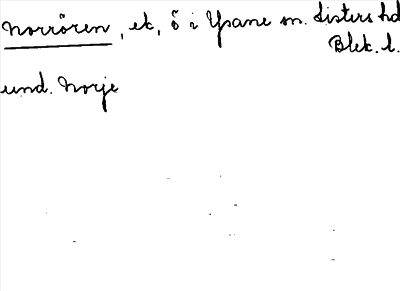 Norrören, ek, ö i Ysane sn. Listers hd
Blek. l.
und. Norje